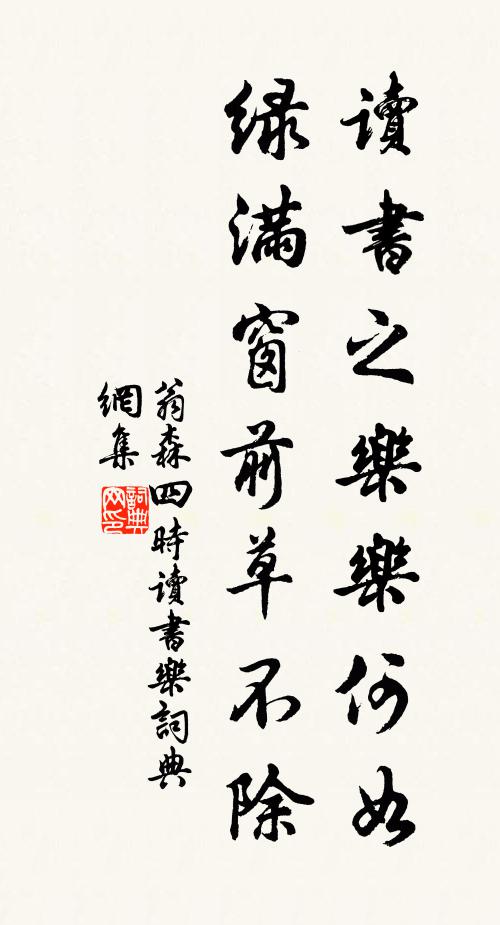 讀書之樂樂何如
緑滿窗前草不除
翁森四時讀書樂詞典
網集
詞典网印